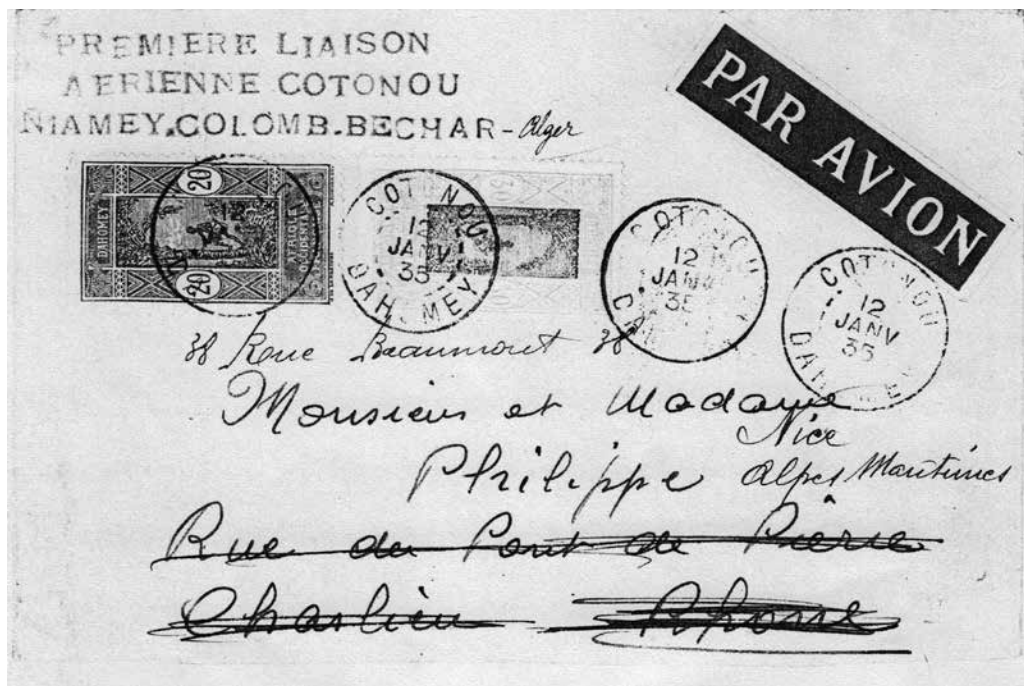 PREMIERE LIAISON
AERIENNE COTONOU
NIAMEY.COLOMB.BECHAR - Alger
PAR AVION
20
DAHOMEY
AFRIQUE OCCIDENTALE
20
12
COTONOU
12
JANV
35
DAHOMEY
COTONOU
12
JANV
35
DAHOMEY
COTONOU
12
JANV
35
DAHOMEY
38 Roue Beaumont 38
Monsieur et Madame
Nice
Philippe Alpes Maritimes
Rue du Pont de Pierre
Charlieu Rhone